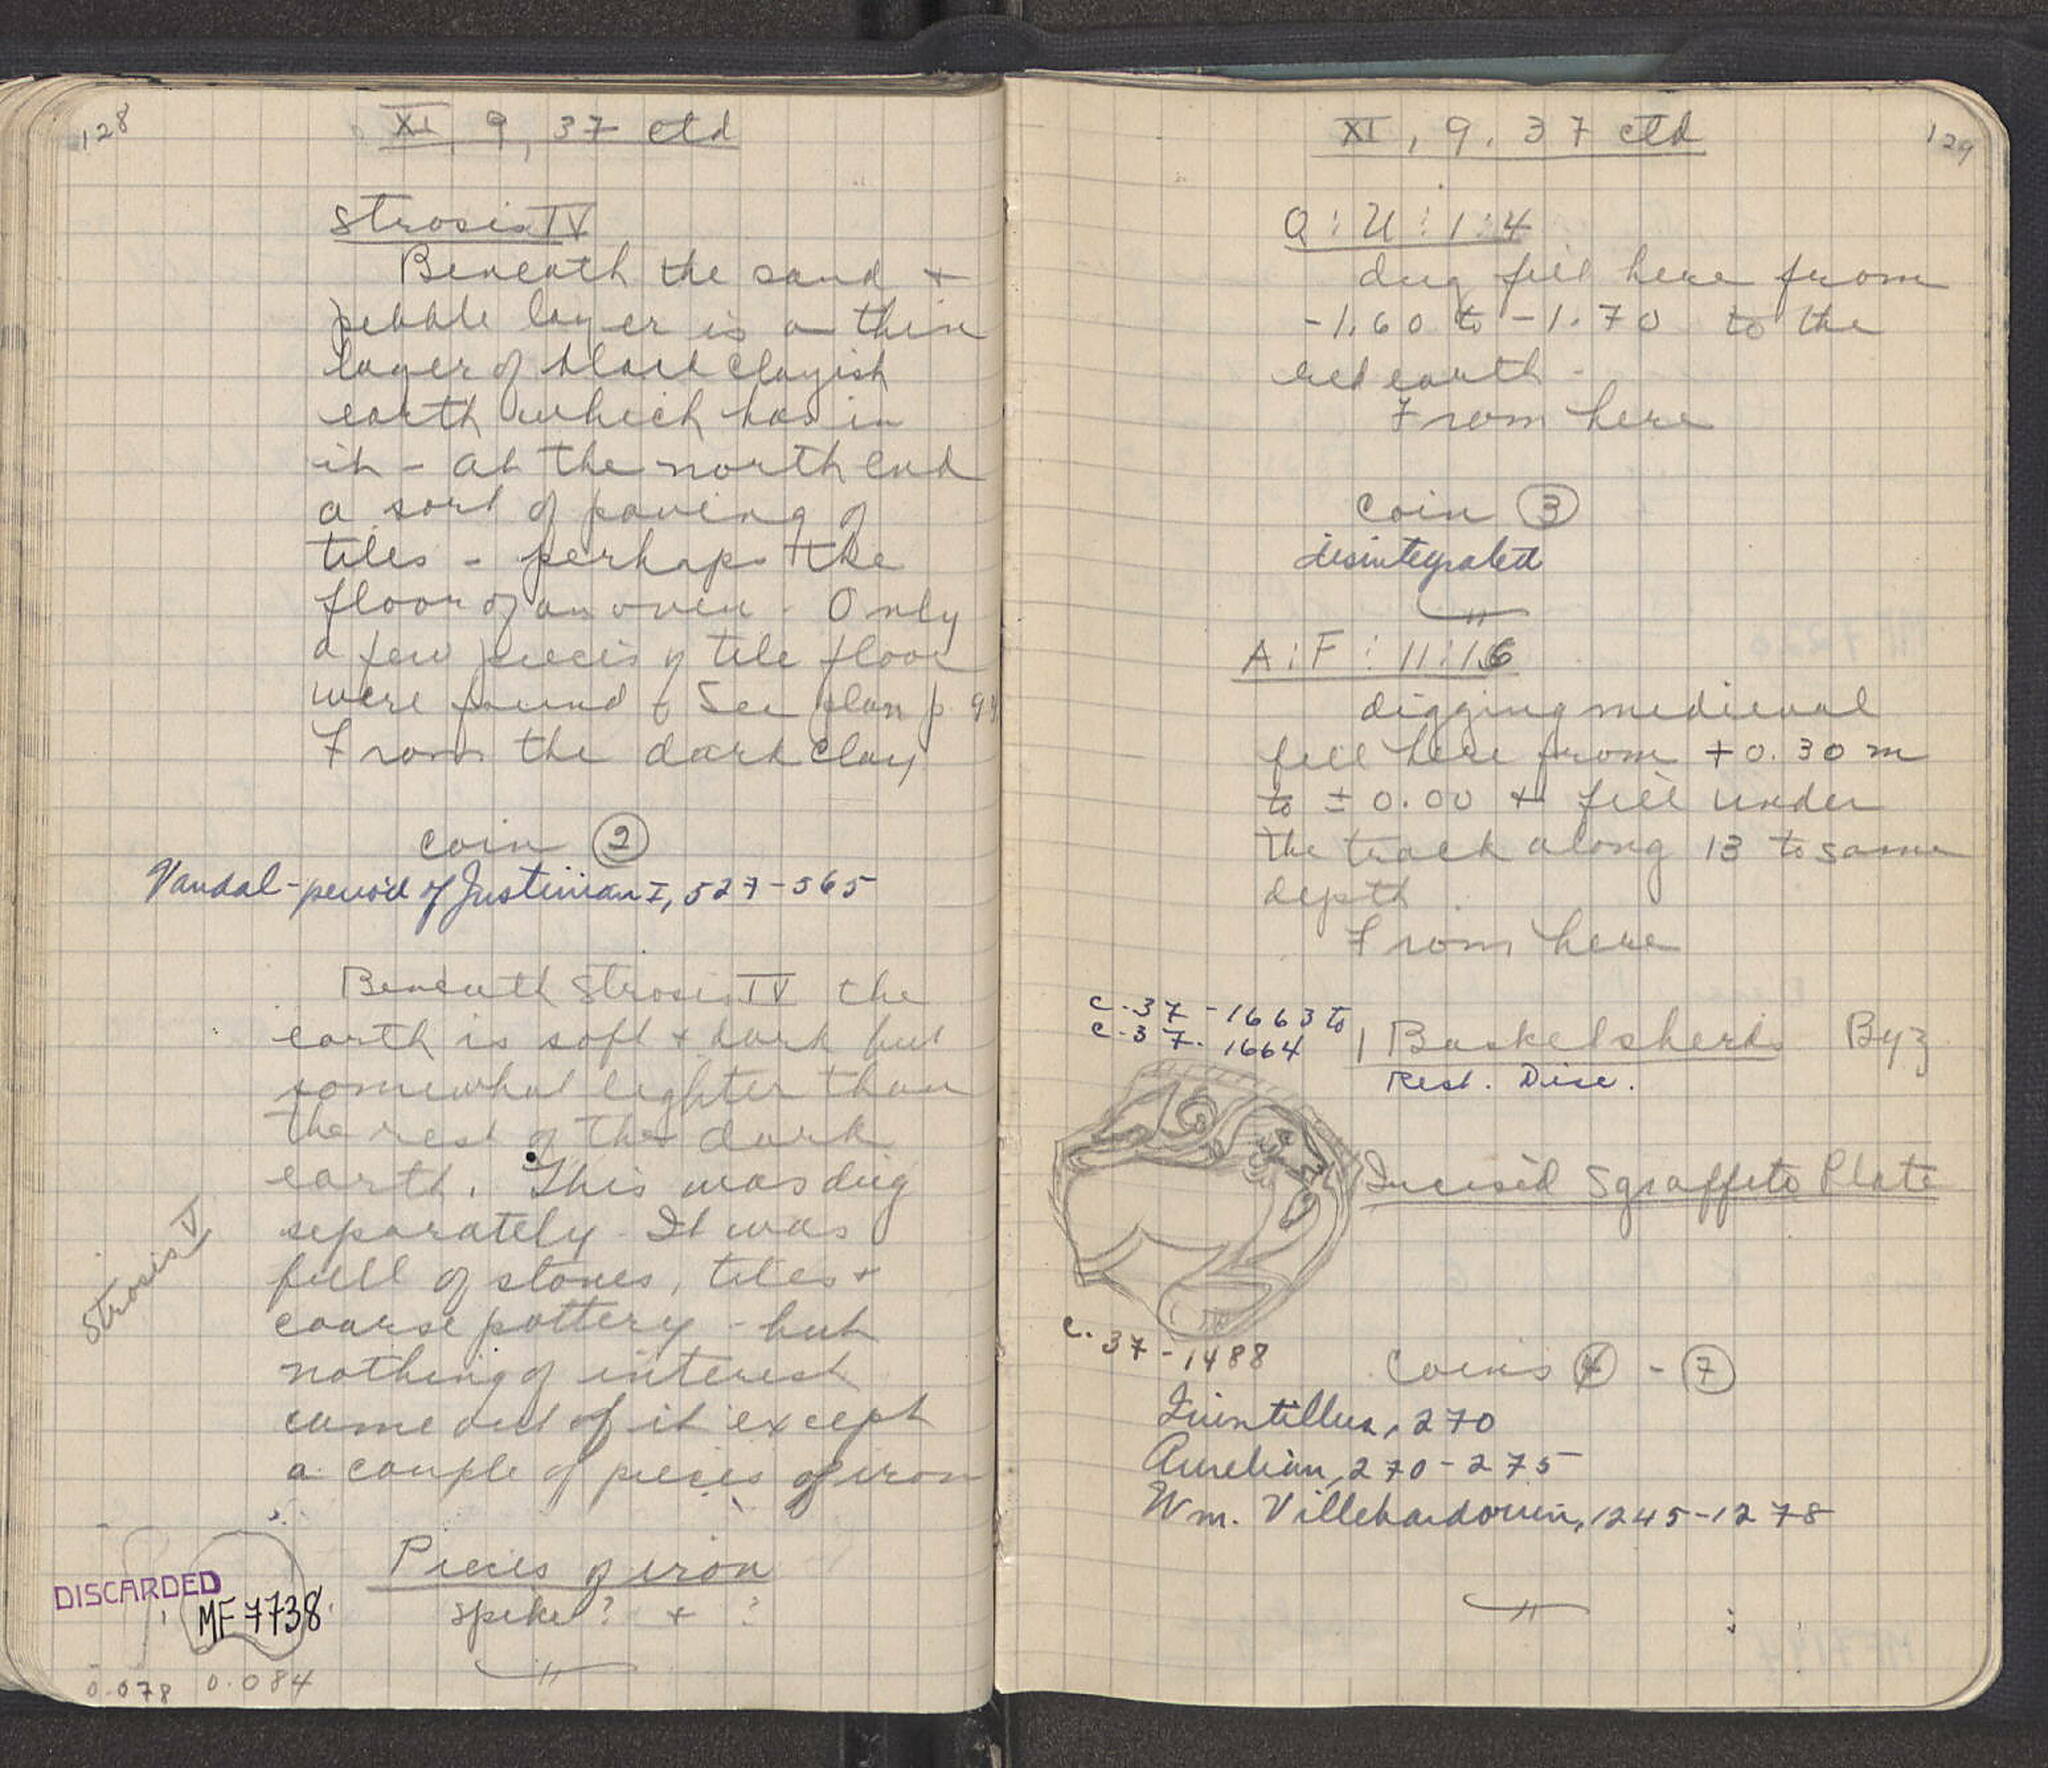 128
XI, 9, 37 ctd
Strosis IV
Beneath the sand +
pebble layer is a thin
layer of black clayish
earth which has in
it - at the north end
a sort of paving of
tiles - perhaps the
floor of an oven. Only
a few pieces of tile floor
were found. See plan p.
From the dark clay
coin ②
Vandal - period of Justinian I, 527-565
Beneath Strosis IV the
earth is soft + dark but
somewhat lighter than
the rest of the dark
earth. This was dug
separately. It was
Strosis V
full of stones, tiles +
coarse pottery - but
nothing of interest
came out of it except
a couple of pieces of iron
Pieces of iron
spike? + ?
DISCARDED
MF 7738
0.078 0.084
XI, 9. 37 ctd
129
Q:U:1:4
dug fill here from
-1.60 to -1.70 to the
red earth.
From here
coin ③
disintegrated
A:F:11:16
digging medieval
fill here from +0.30 m
to ±0.00 + fill under
the track along 13 to same
depth.
From here
C-37-1663 to
C-37-1664
1 Basket sherds Byz
Rest. Disc.
Incised Sgraffito Plate
C-37-1488
coins ④ - ⑦
Quintillus, 270
Aurelian, 270-275
Wm. Villehardouin, 1245-1278